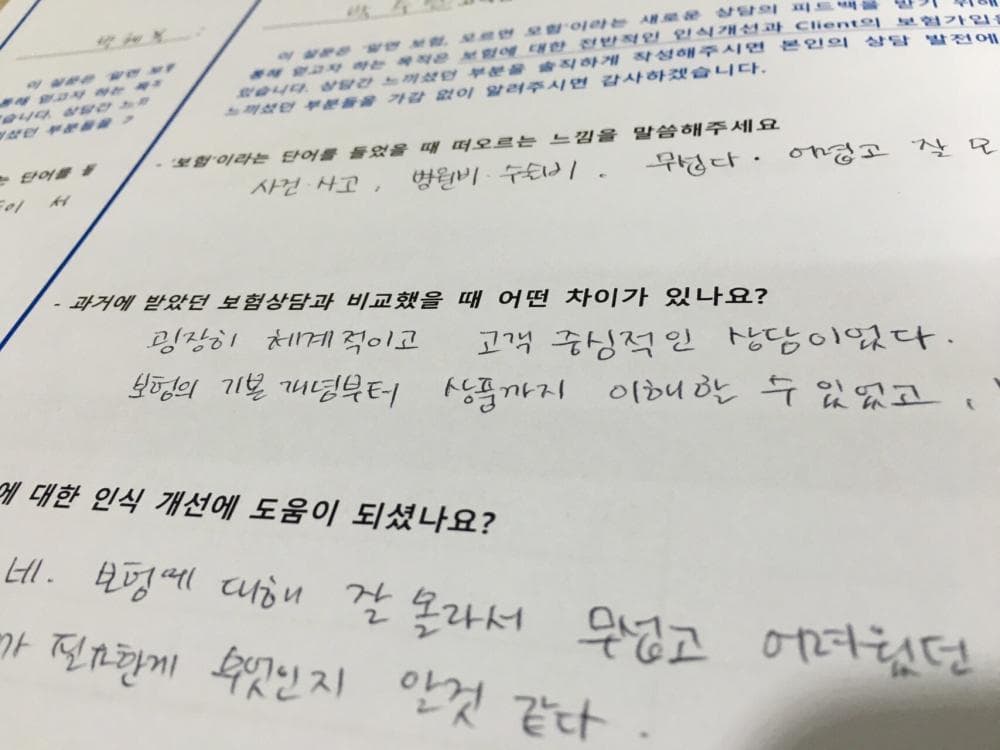 이 설문은 '알면 보험, 모르면 모험'이라는 새로운 상담의 피드백을 받기 위해
통해 얻고자 하는 목적은 보험에 대한 전반적인 인식개선과 Client의 보험가입을
있습니다. 상담간 느끼셨던 부분을 솔직하게 작성해주시면 본인의 상담 발전에
느끼셨던 부분들을 가감 없이 알려주시면 감사하겠습니다.
이 설문은 '알면 보험
통해 얻고자 하는 목적
있습니다. 상담간 느끼
끼셨던 부분들을 가
는 단어를 들
- '보험'이라는 단어를 들었을 때 떠오르는 느낌을 말씀해주세요
사건·사고, 병원비·수술비. 무섭다. 어렵고 잘 모
- 과거에 받았던 보험상담과 비교했을 때 어떤 차이가 있나요?
굉장히 체계적이고 고객 중심적인 상담이었다.
보험의 기본 개념부터 상품까지 이해할 수 있었고,
에 대한 인식 개선에 도움이 되셨나요?
네. 보험에 대해 잘 몰라서 무섭고 어려웠던
가 필요한게 무엇인지 알것 같다.